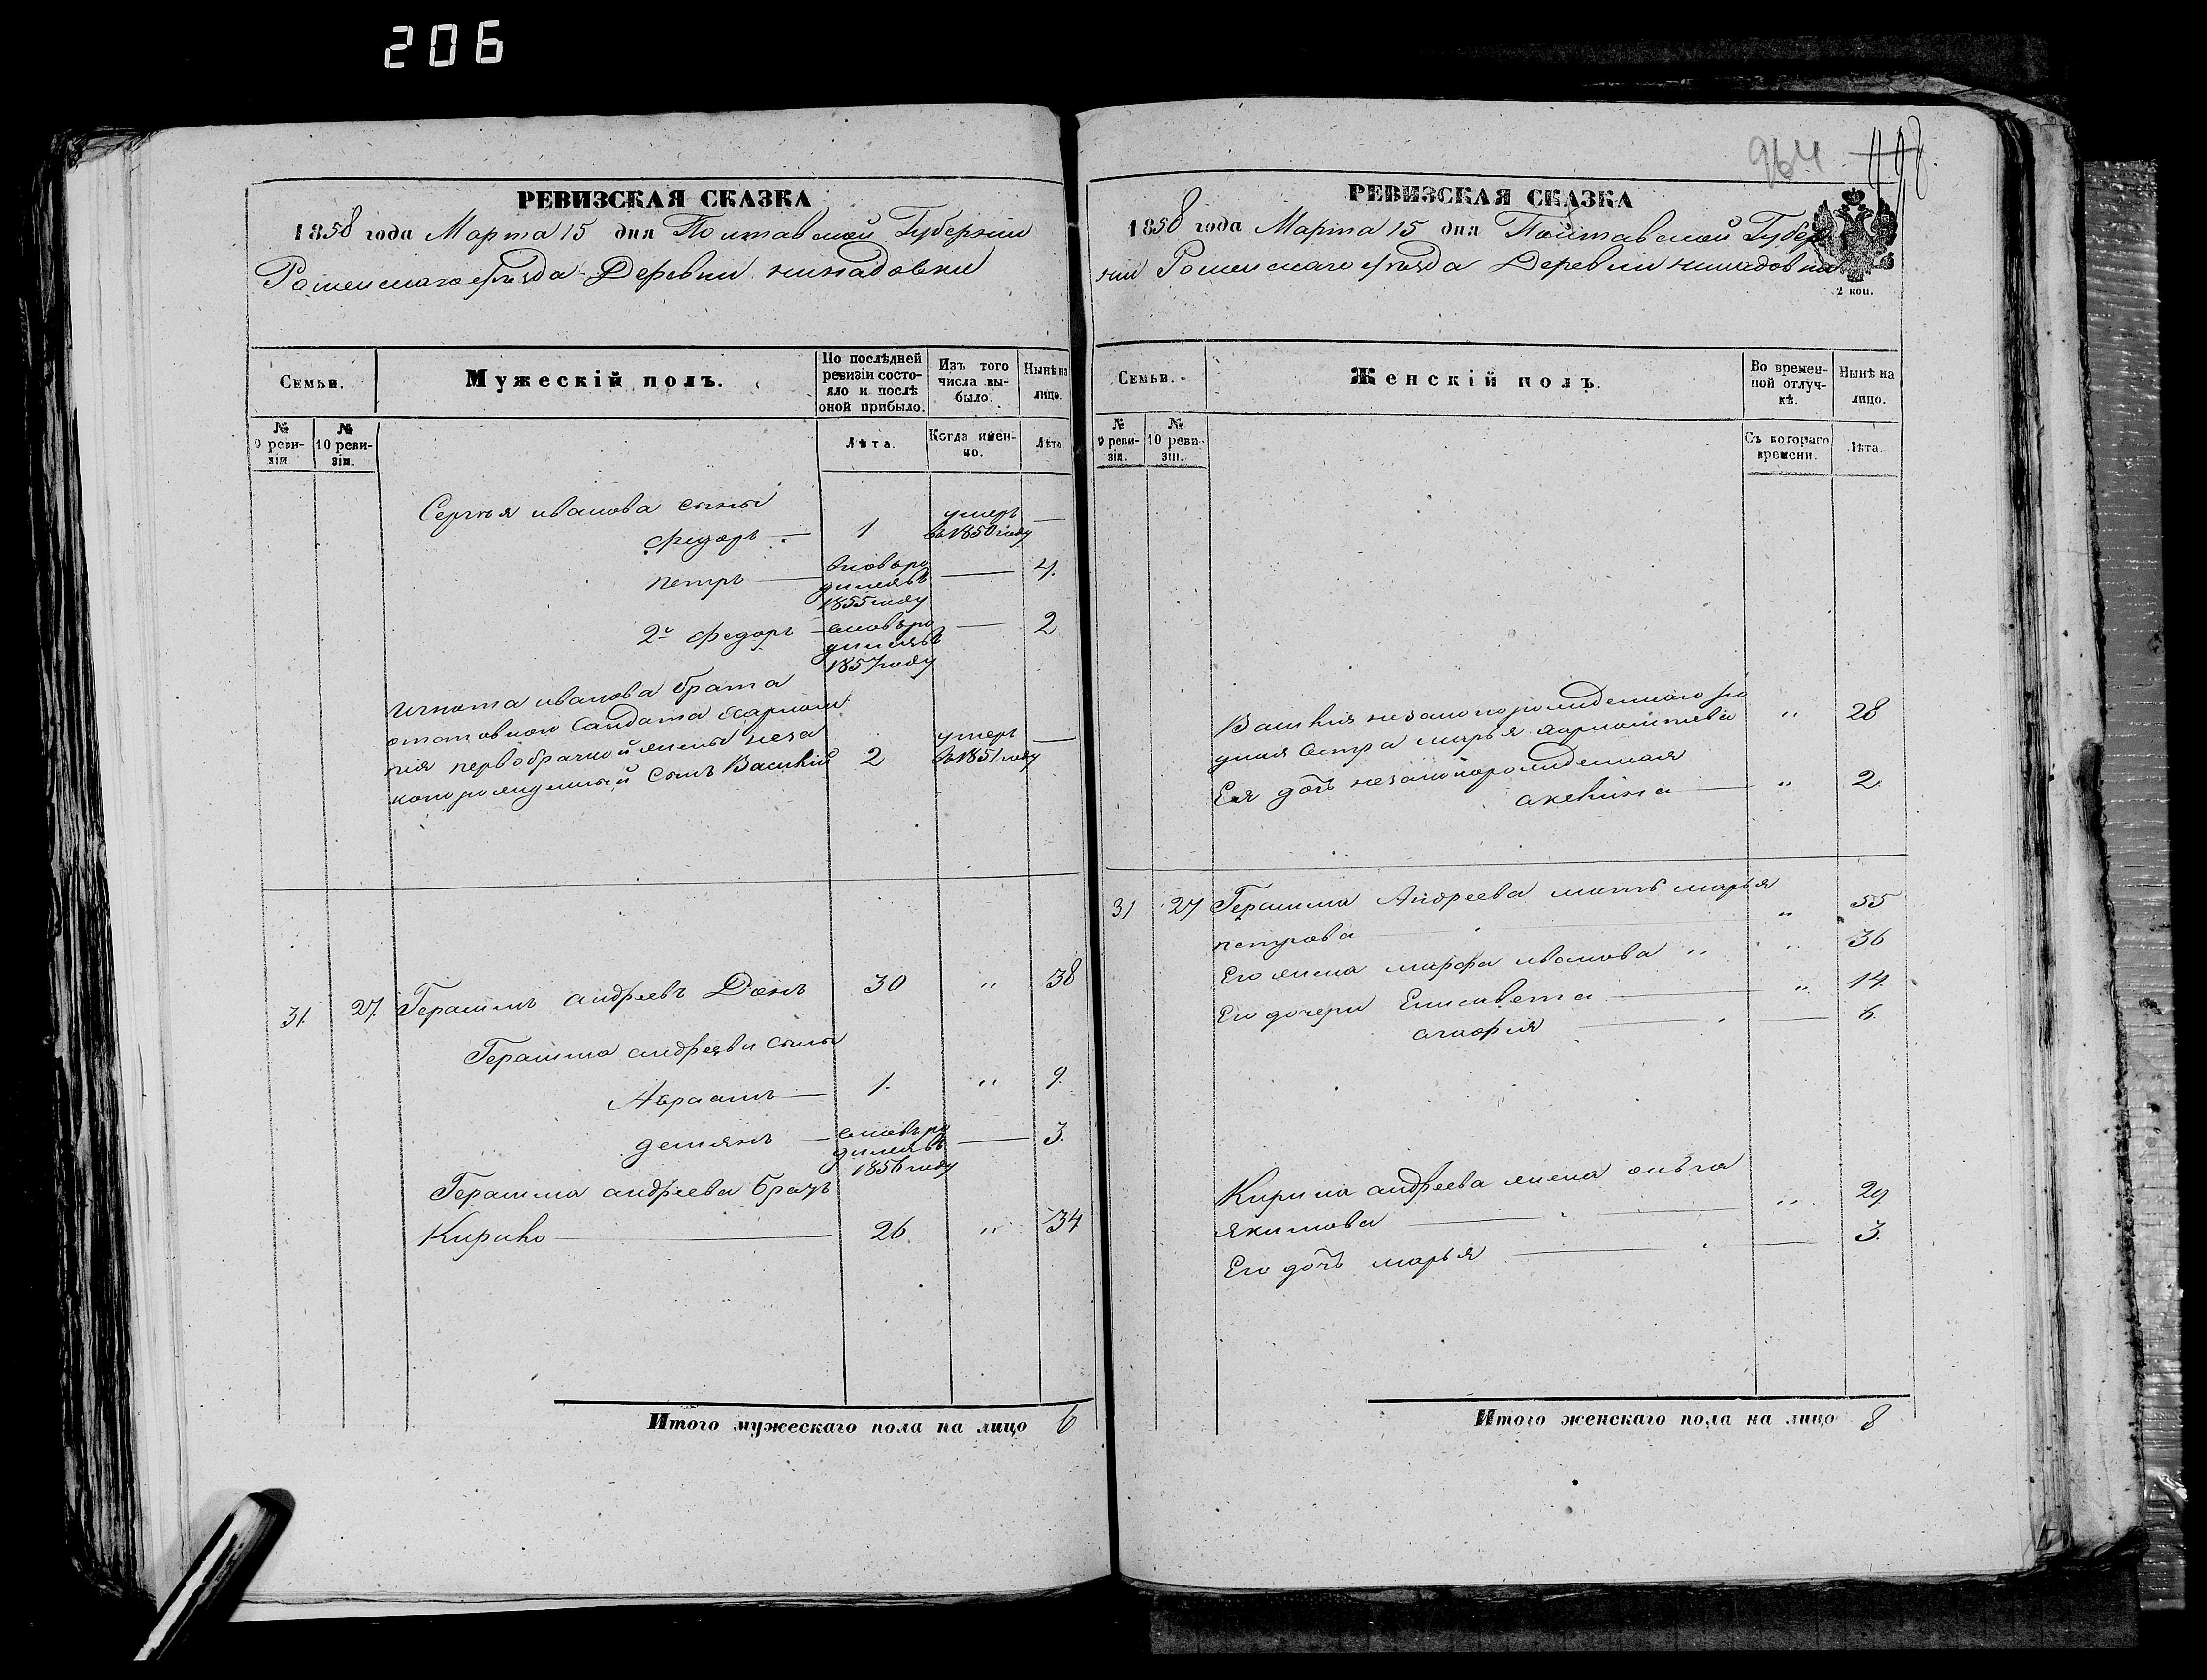 206
РЕВИЗСКАЯ СКАЗКА
1858 года Марта 15 дня Полтавской Губернии
Роменского уезда Деревни
Семьи.
Мужескій полъ.
По послѣдней ревизіи состояло и послѣ оной прибыло.
Изъ того числа выбыло.
Нынѣ на лицо.
№ 9 ревизіи
№ 10 ревизіи.
Лѣта.
Когда именно.
Лѣта
Сергея иванова сыны
федоръ — 1 умеръ въ 1850 году —
петръ — вновь родился въ 1855 году — 4.
2й федоръ — вновь родился въ 1857 году — 2
игната иванова брата
отставного Салдата
первобрачной жены неза
коннорожденный сынъ Василій 2 умеръ въ 1851 году —
31. 27. Герасимъ андреевъ 30 " 38
Герасима андреева сыны
Авраамъ — 1. " 9.
демянъ — вновь родился въ 1856 году — 3.
Герасима андреева братъ
Кирило — 26. " 34
Итого мужескаго пола на лицо 6
964 498.
РЕВИЗСКАЯ СКАЗКА
1858 года Марта 15 дня Полтавской Губер
нии Роменского уезда Деревни
2 коп.
Семьи.
Женскій полъ.
Во временной отлучкѣ.
Нынѣ на лицо.
№ 9 ревизіи.
№ 10 ревизіи.
Съ котораго времени.
Лѣта.
Василия незаконнорожденного ро
дная сестра марья " 28
Ея дочь незаконнорожденная
акелина — " 2.
31 27 Герасима Андреева мать марья
петрова — " 55
Его жена марфа иванова " " 36
Его дочери Елисавета — " 14.
агафия — 6.
Кирила андреева жена
якимова — " 29
Его дочь марья — 3.
Итого женскаго пола на лицо 8